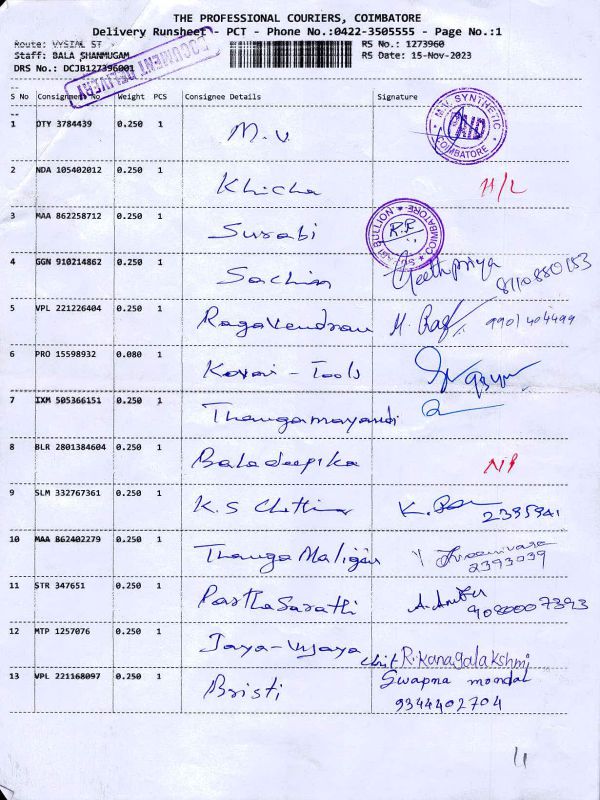 THE PROFESSIONAL COURIERS, COIMBATORE
Delivery Runsheet - PCT - Phone No.:0422-3505555 - Page No.:1
Route: VYSIAL ST
RS No.: 1273960
Staff: BALA SHANMUGAM
RS Date: 15-Nov-2023
DRS No.: DCJB127396001
DOCUMENT DELIVERY
S No Consignment No. Weight PCS Consignee Details Signature
1 OTY 3784439 0.250 1 M.V
M.V. SYNTHETIC COIMBATORE
2 NDA 105402012 0.250 1 Khicha H/L
3 MAA 862258712 0.250 1 Surabi
BULLION COIMBATORE
4 GGN 910214862 0.250 1 Sachin Geethpriya
8110880153
5 VPL 221226404 0.250 1 Ragavendran M. 9901404499
6 PRO 15598932 0.080 1 Kovai - Tools
7 IXM 505366151 0.250 1 Thangamayandi
8 BLR 2801384604 0.250 1 Baladeepika NP
9 SLM 332767361 0.250 1 K.S Chettiar K.
2395941
10 MAA 862402279 0.250 1 Thanga Maligai Sreenivasa
2393039
11 STR 347651 0.250 1 PasthaSarathi A.
9080007393
12 MTP 1257076 0.250 1 Jaya-Vijaya chit R.Kanagalakshmi
13 VPL 221168097 0.250 1 Bristi Swapna mondal
9344402704
11